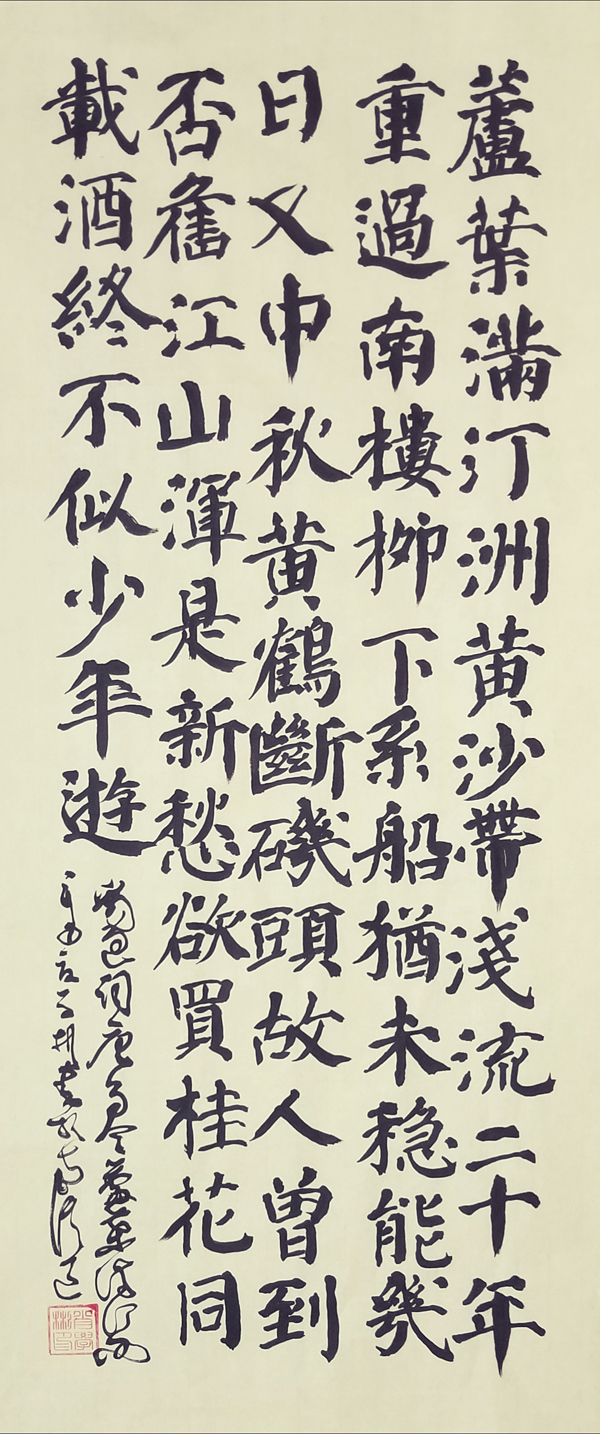 蘆葉滿汀洲黄沙帶淺流二十年
重過南樓柳下系船猶未稳能幾
日又中秋黄鶴斷磯頭故人曾到
否舊江山渾是新愁欲買桂花同
載酒終不似少年遊
劉過詞唐多令蘆葉滿汀洲